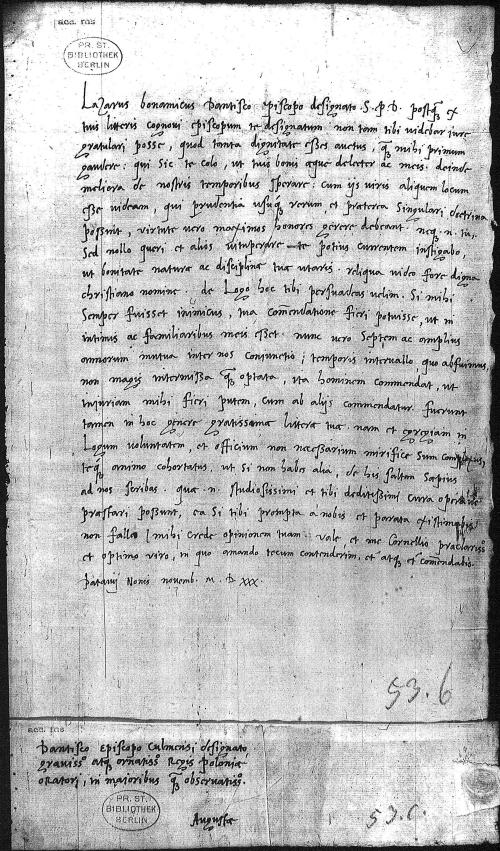 acc. ms
PR. ST.
BIBLIOTHEK
BERLIN
Lazarus bonamicus Dantisco episcopo designato .S.P.D. postq; ex
tuis litteris cognovi episcopum te designatum non tam tibi videbar iure
gratulari posse, quod tanta dignitate esses auctus, q; mihi primum
gaudere: qui sic te colo, ut tuis bonis aeque delecter ac meis. deinde
meliora de nostris temporibus sperare: cum iis viris aliquem locum
esse videam, qui prudentia usuq; rerum, et praeterea singulari doctrina
possunt, virtute vero maximos honores gerere debeant. neq. n. tu,
sed nollo queri et alios vituperare te potius currentem instigabo,
ut bonitate naturae ac disciplinae tuae utaris. reliqua video fore digna
christiano nomine. de Logo hoc tibi persuadeas velim. Si mihi
Semper fuisset inimicus, tua com̄endatione fieri potuisse, ut in
intimis ac familiaribus meis esset. nunc vero Septem ac amplius
annorum mutua inter nos coniunctio; temporis intervallo, quo abfuimus,
non magis intermissa q; optata, ita hominem commendat, ut
iniuriam mihi fieri putem, cum ab aliis commendatur. fuerunt
tamen in hoc genere gratissimae litterae tuae. nam et egregiam in
Logum voluntatem, et officium non necessarium mirifice sum complexus,
teq; animo cohortatus, ut si non habes alia, de his saltem saepius
ad nos scribas. quae .n. studiosissimi et tibi deditissimi cura operave
praestari possunt, ea si tibi prompta a nobis et parata existimabis
non fallet mihi crede opinionem tuam. vale et me Cornelio praeclariss°
et optimo viro, in quo amando tecum contenderim, et atq; et comendabis.
Patavij Nonis novemb. M. D XXX.
53.6
acc. ms
Dantisco Episcopo Culmensi designato
graviss° atq; ornatiss° Regis poloniae
oratori, in maioribus q; observatiss°.
PR. ST.
BIBLIOTHEK
BERLIN
Augustae
53.C.